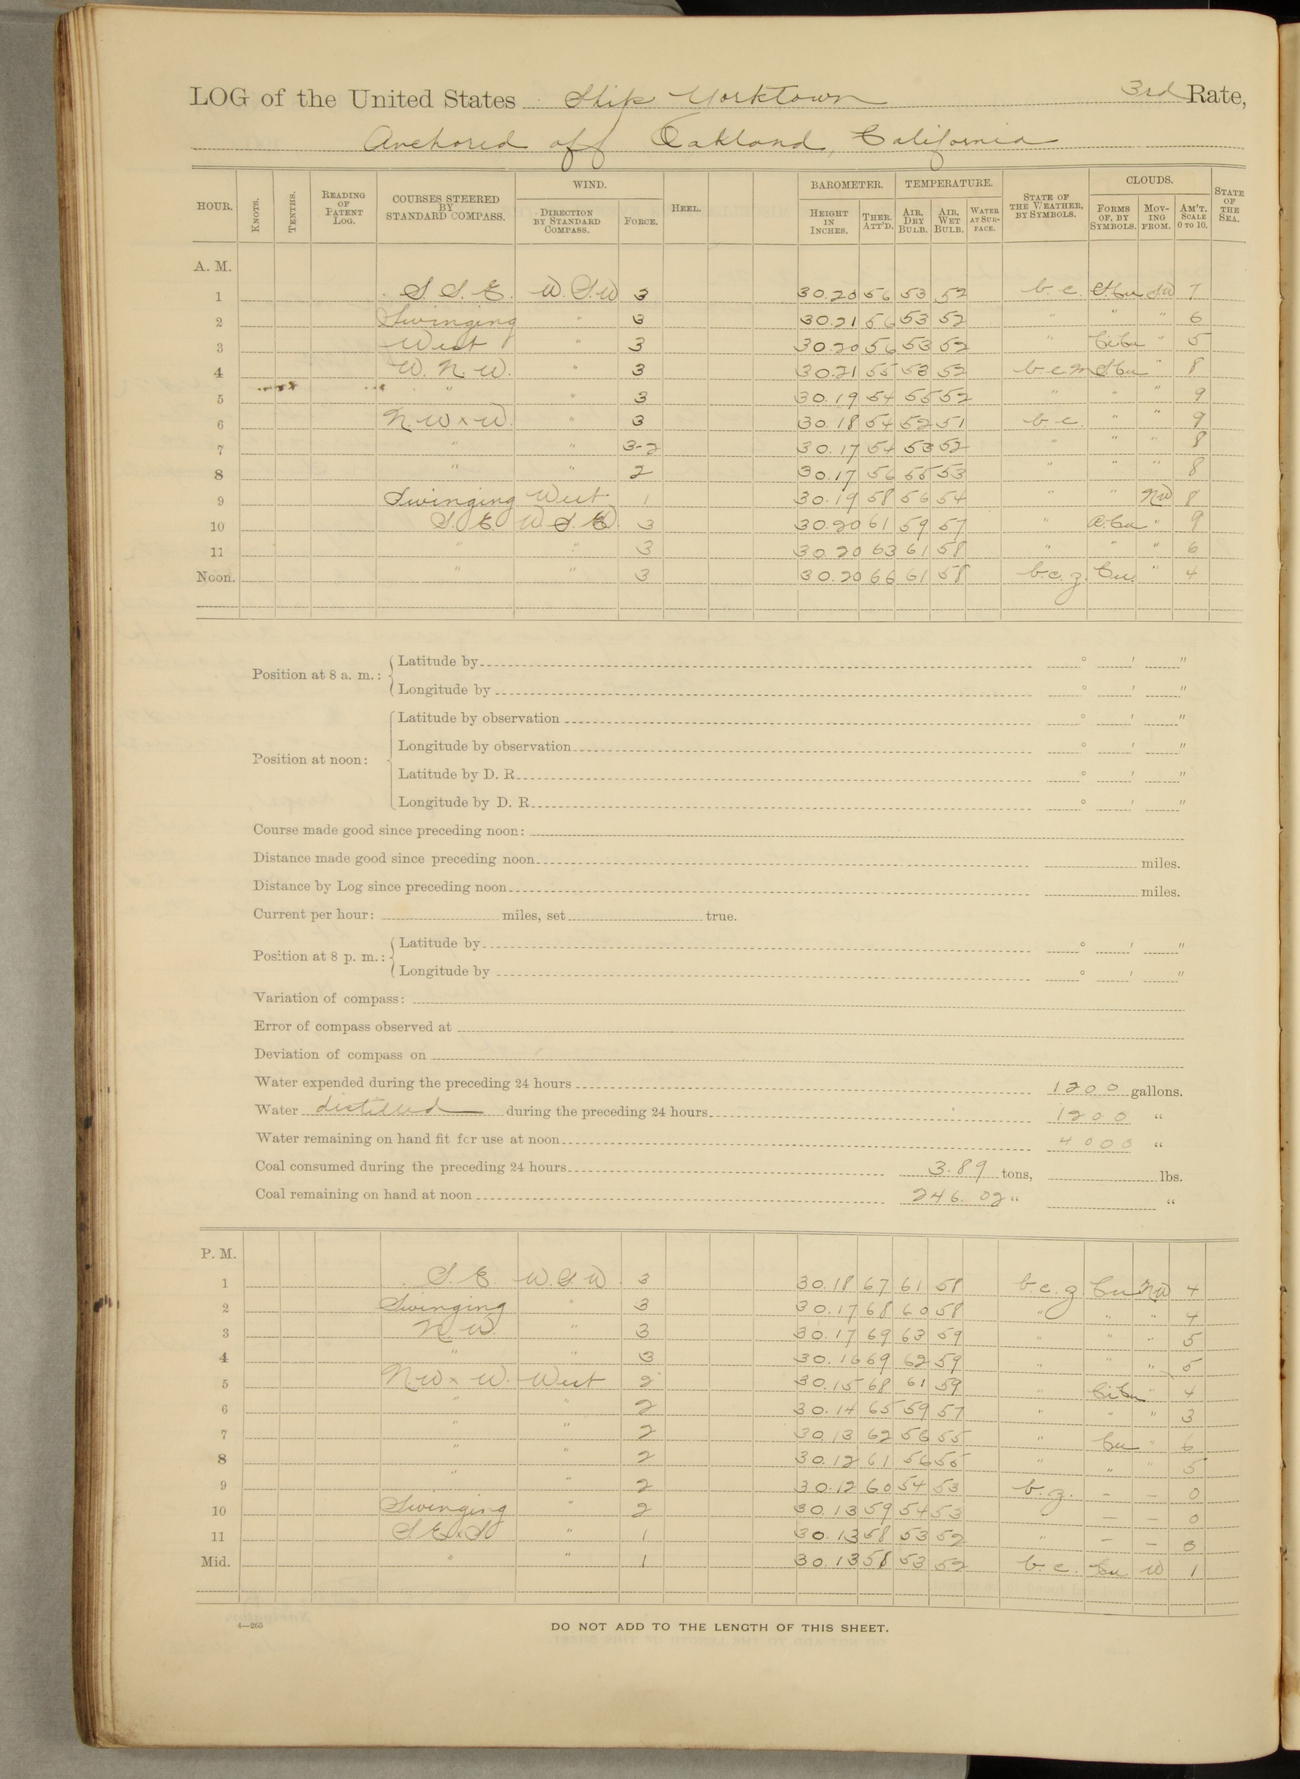 LOG of the United States Ship Yorktown 3rd Rate,
Anchored off Oakland, California
HOUR. KNOTS. TENTHS. READING OF PATENT LOG. COURSES STEERED BY STANDARD COMPASS. WIND. DIRECTION BY STANDARD COMPASS. FORCE. HEEL. BAROMETER. HEIGHT IN INCHES. THER. ATT'D. TEMPERATURE. AIR, DRY BULB. AIR, WET BULB. WATER AT SURFACE. STATE OF THE WEATHER, BY SYMBOLS. CLOUDS. FORMS OF, BY SYMBOLS. MOVING FROM. AM'T. SCALE 0 TO 10. STATE OF THE SEA.
A. M.
1 S S. E. W. S. W 3 30.20 56 53 52 b. c. S.Cu SW 7
2 Swinging " 3 30.21 56 53 52 " " " 6
3 West " 3 30.20 56 53 52 " Ci Cu " 5
4 W. N. W. " 3 30.21 55 53 52 b. c. m S.Cu " 8
5 " " 3 30.19 54 55 52 " " " 9
6 N. W x W. " 3 30.18 54 52 51 b. c. " " 9
7 " " 3-2 30.17 54 53 52 " " " 8
8 " " 2 30.17 56 55 53 " " " 8
9 Swinging West 1 30.19 58 56 54 " " NW 8
10 S. E W S. 3 30.20 61 59 57 " a. Cu " 9
11 " " 3 30.20 63 61 58 " " " 6
Noon. " " 3 30.20 66 61 58 b. c. z. Cu. " 4
Position at 8 a. m.: Latitude by ° ′ ″
Longitude by ° ′ ″
Position at noon: Latitude by observation ° ′ ″
Longitude by observation ° ′ ″
Latitude by D. R. ° ′ ″
Longitude by D. R. ° ′ ″
Course made good since preceding noon:
Distance made good since preceding noon miles.
Distance by Log since preceding noon miles.
Current per hour: miles, set true.
Position at 8 p. m.: Latitude by ° ′ ″
Longitude by ° ′ ″
Variation of compass:
Error of compass observed at
Deviation of compass on
Water expended during the preceding 24 hours 1200 gallons.
Water distilled during the preceding 24 hours 1200 "
Water remaining on hand fit for use at noon 4000 "
Coal consumed during the preceding 24 hours 3.89 tons, lbs.
Coal remaining on hand at noon 246.02 " "
P. M.
1 S. E. W. S. W. 3 30.18 67 61 58 b. c. z Cu NW 4
2 Swinging " 3 30.17 68 60 58 " " " 4
3 N. W. " 3 30.17 69 63 59 " " " 5
4 " " 3 30.16 69 62 59 " " " 5
5 N W x W. West 2 30.15 68 61 59 " Ci Cu " 4
6 " " 2 30.14 65 59 57 " " " 3
7 " " 2 30.13 62 56 55 " Cu " 6
8 " " 2 30.12 61 56 55 " " " 5
9 " " 2 30.12 60 54 53 b. z. — — 0
10 Swinging " 2 30.13 59 54 53 — — 0
11 S E x S " 1 30.13 58 53 52 " — — 0
Mid. " " 1 30.13 58 53 52 b. c. Cu W 1
4—265
DO NOT ADD TO THE LENGTH OF THIS SHEET.